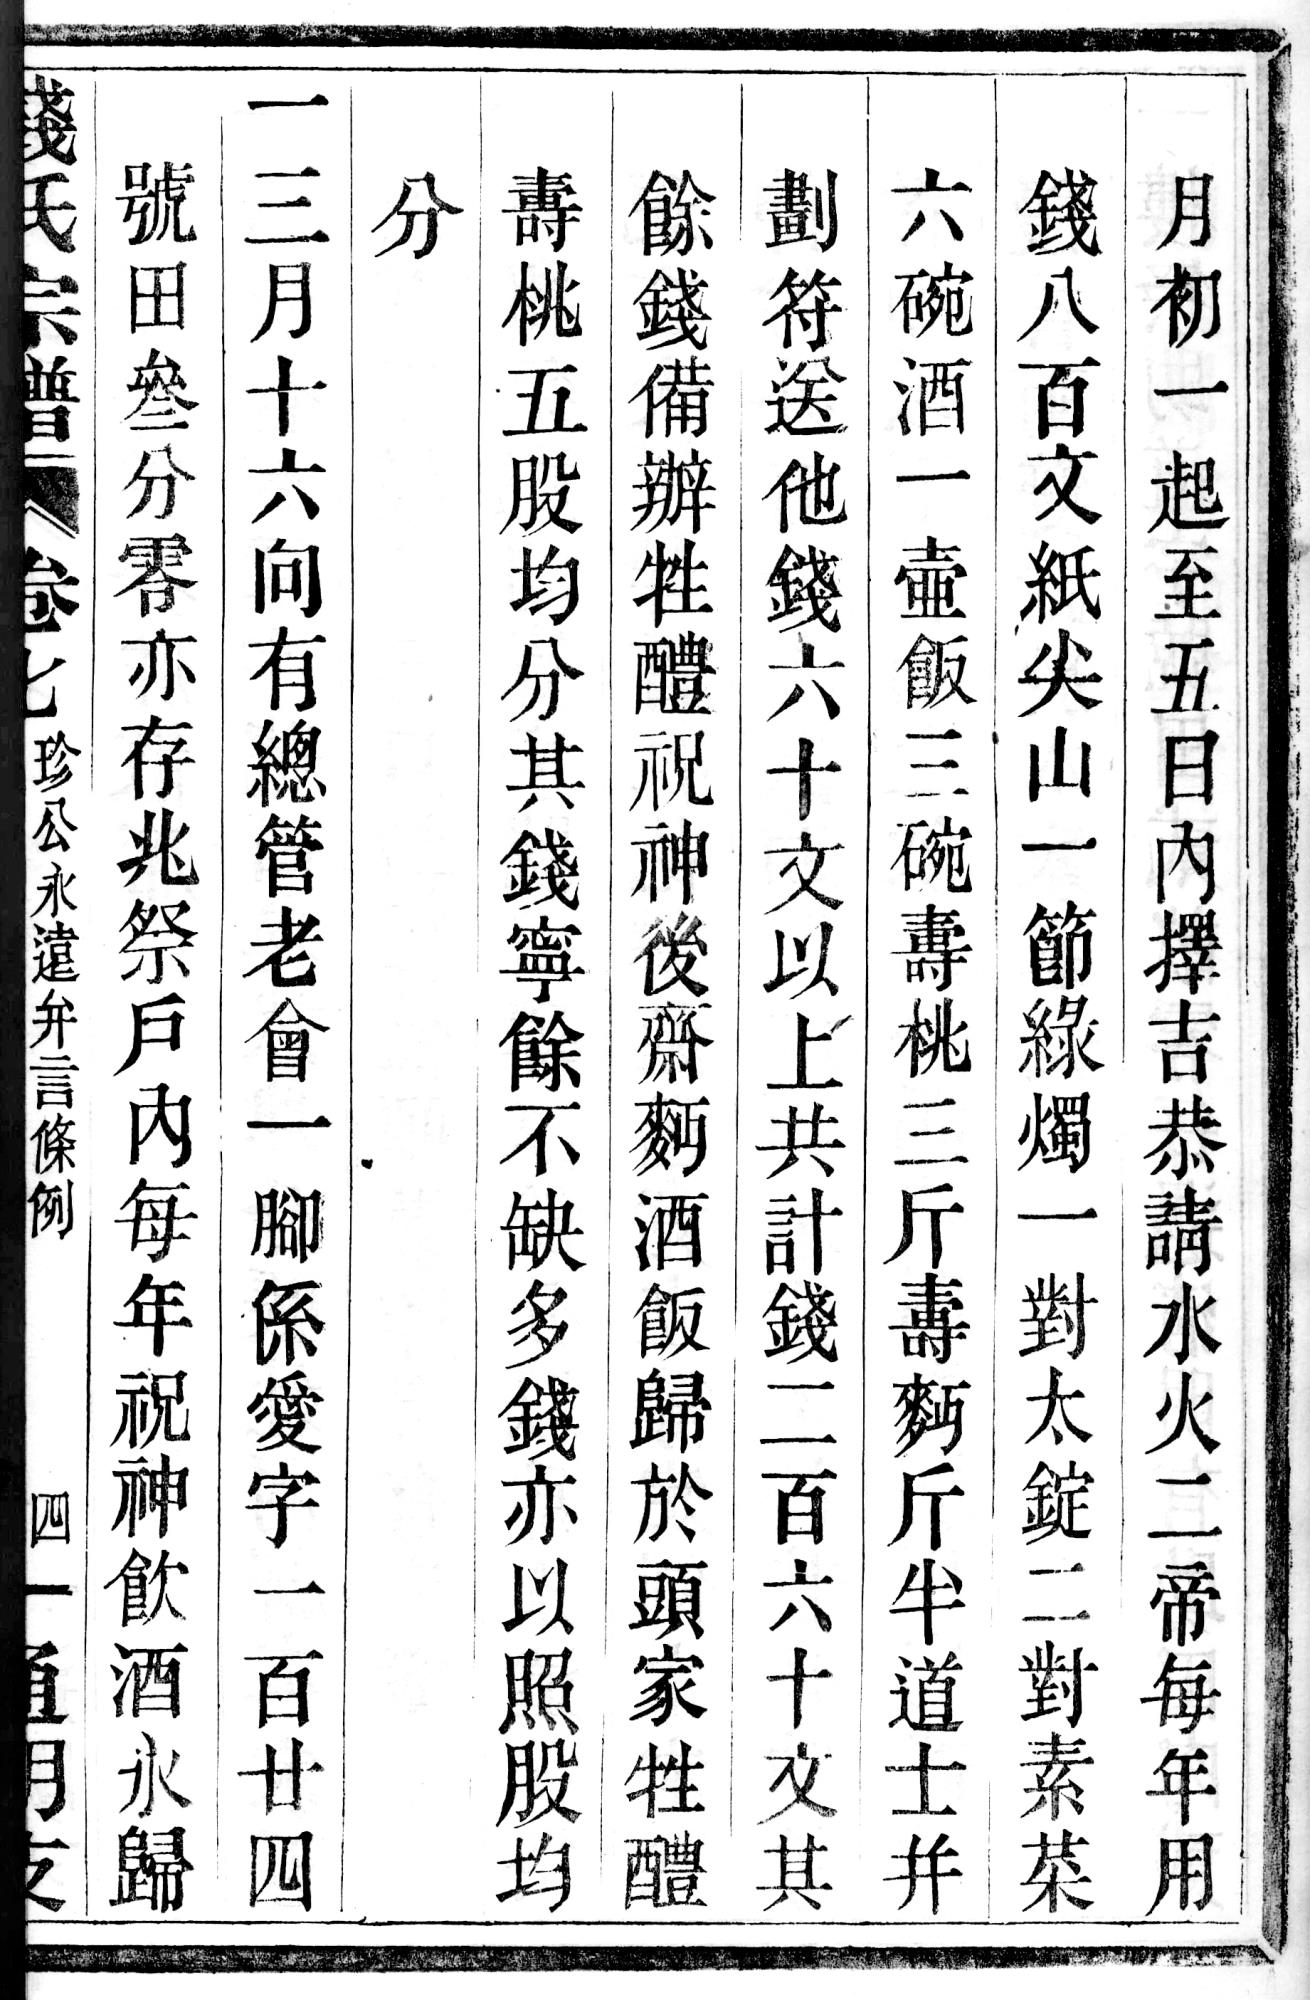 月初一起至五日內擇吉恭請水火二帝每年用
錢八百文紙尖山一節綠燭一對太錠二對素菜
六碗酒一壺飯三碗壽桃三斤壽麪斤半道士并
劃符送他錢六十文以上共計錢二百六十文其
餘錢備辦牲醴祝神後齋麪酒飯歸於頭家牲醴
壽桃五股均分其錢寧餘不缺多錢亦以照股均
分
一三月十六向有總管老會一腳係愛字一百廿四
號田叄分零亦存兆祭戶內每年祝神飲酒永歸
錢氏宗譜 卷七 珍公永遠弁言條例 四一 通明支